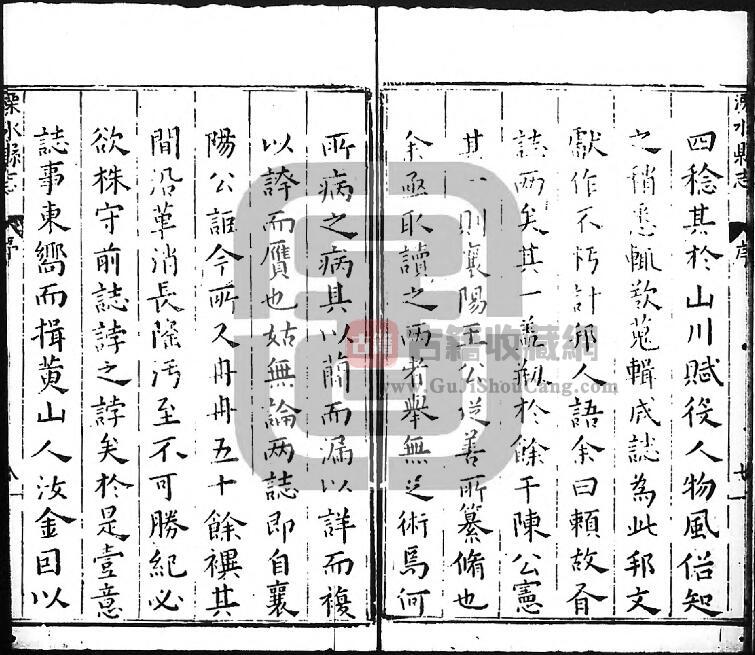 溧水縣志 序
四稔其於山川賦役人物風俗知
之稍悉輒歎蒐輯成誌為此邦文
獻作不朽計邦人語余曰賴故有
誌兩矣其一蓋刱於餘干陳公憲
其一則襄陽王公從善所纂脩也
余亟取讀之两者舉無足術焉何
所病之病其以簡而漏以詳而複
以誇而贋也姑無論两誌即自襄
陽公詎今所又冉冉五十餘禩其
間沿革消長隆汚至不可勝紀必
欲株守前誌誖之誖矣於是壹意
誌事東嚮而揖黄山人汝金因以
溧水縣志 序 八
古籍收藏網
www.GuJiShouCang.com